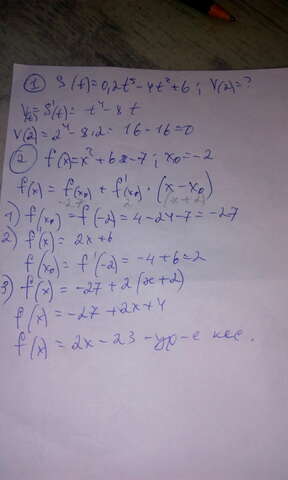 ① S(t)=0,2t⁵-4t²+6; V(2)=?
V(t)=S'(t)= t⁴-8t
V(2)=2⁴-8·2= 16-16=0
② f(x)=x²+6x-7; x₀=-2
f(x)= f(x₀) + f'(x₀) · (x-x₀)
-27 2 (x+2)
1) f(x₀)=f(-2)=4-24-7=-27
2) f'(x)= 2x+6
f'(x₀)= f'(-2)= -4+6=2
3) f(x)= -27+2(x+2)
f(x)= -27+2x+4
f(x)= 2x-23 -ур-е кас.